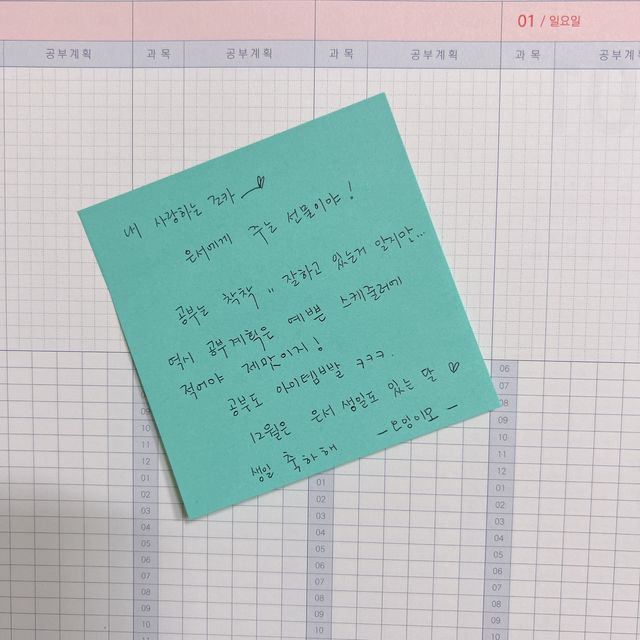 01 / 일요일
공부계획 과목 공부계획 과목 공부계획 과목 공부계
내 사랑하는 조카
은서에게 주는 선물이야!
공부는 척척 " 잘하고 있는거 알지만...
역시 공부계획은 예쁜 스케줄러에
적어야 제맛이지!
공부도 아이템빨 ㅋㅋㅋ.
12월은 은서 생일도 있는 달 ♡
생일 축하해 -모양이모-
06
07
08
09
10
11
12
01
02
03
04
05
06
07
08
09
10